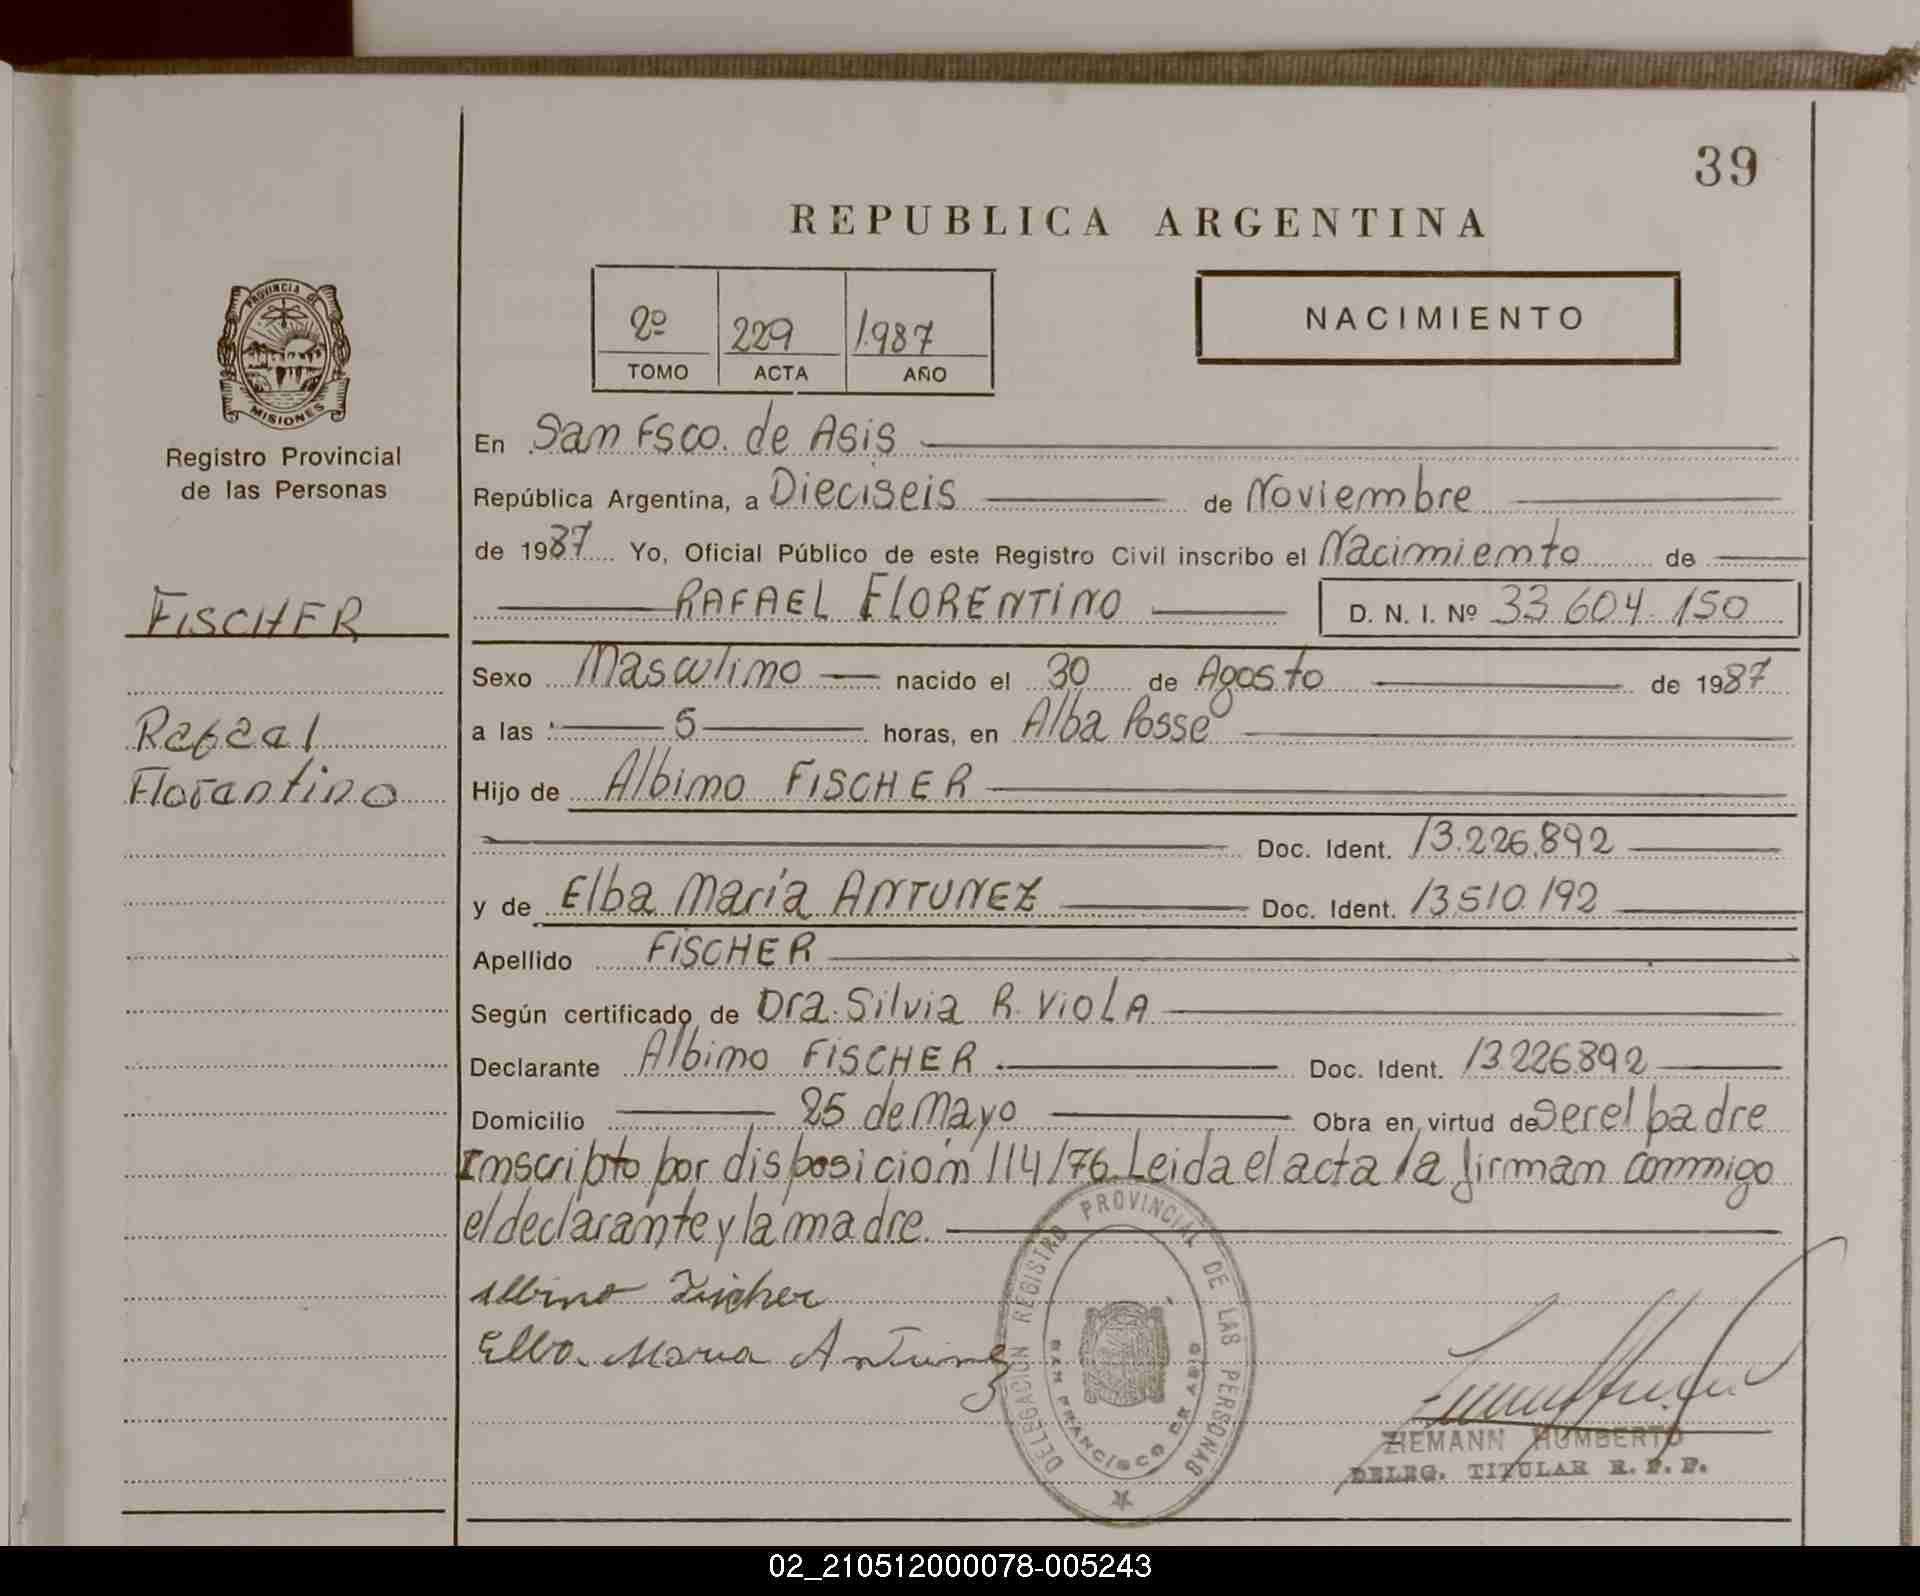 39
REPUBLICA ARGENTINA
PROVINCIA DE
MISIONES
Registro Provincial
de las Personas
2º 229 1.987
TOMO ACTA AÑO
NACIMIENTO
En San Fsco. de Asis
República Argentina, a Dieciseis de Noviembre
de 1987 Yo, Oficial Público de este Registro Civil inscribo el Nacimiento de
FISCHER
RAFAEL FLORENTINO D. N. I. Nº 33 604.150
Sexo Masculino nacido el 30 de Agosto de 1987
Rafael
a las 5 horas, en Alba Posse
Florentino
Hijo de Albino FISCHER
Doc. Ident. 13.226.892
y de Elba María ANTUNEZ Doc. Ident. 13.510.192
Apellido FISCHER
Según certificado de Dra. Silvia R. VIOLA
Declarante Albino FISCHER Doc. Ident. 13.226.892
Domicilio 25 de Mayo Obra en virtud de ser el padre
Inscripto por disposición 114/76. Leida el acta la firman conmigo
el declarante y la madre.
Albino Fischer
Elba Maria Antunez
DELEGACION REGISTRO PROVINCIAL DE LAS PERSONAS
SAN FRANCISCO DE ASIS
ZIEMANN HUMBERTO
DELEG. TITULAR R. P. P.
02_210512000078-005243